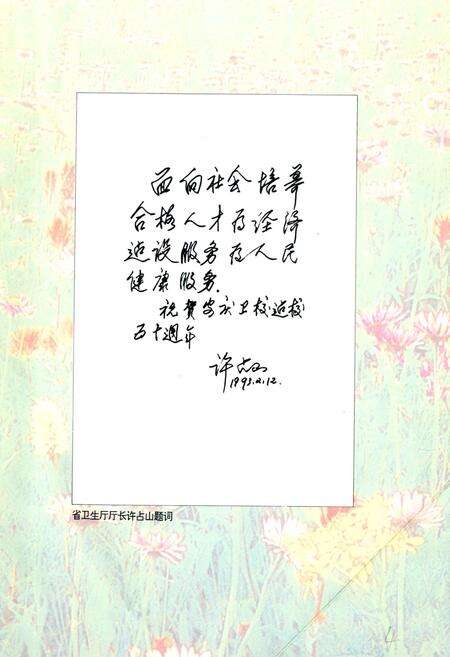 面向社会培养
合格人才为经济
建设服务为人民
健康服务.
祝贺安庆卫校建校
五十週年
许占山
1993.2.12.
省卫生厅厅长许占山题词
4